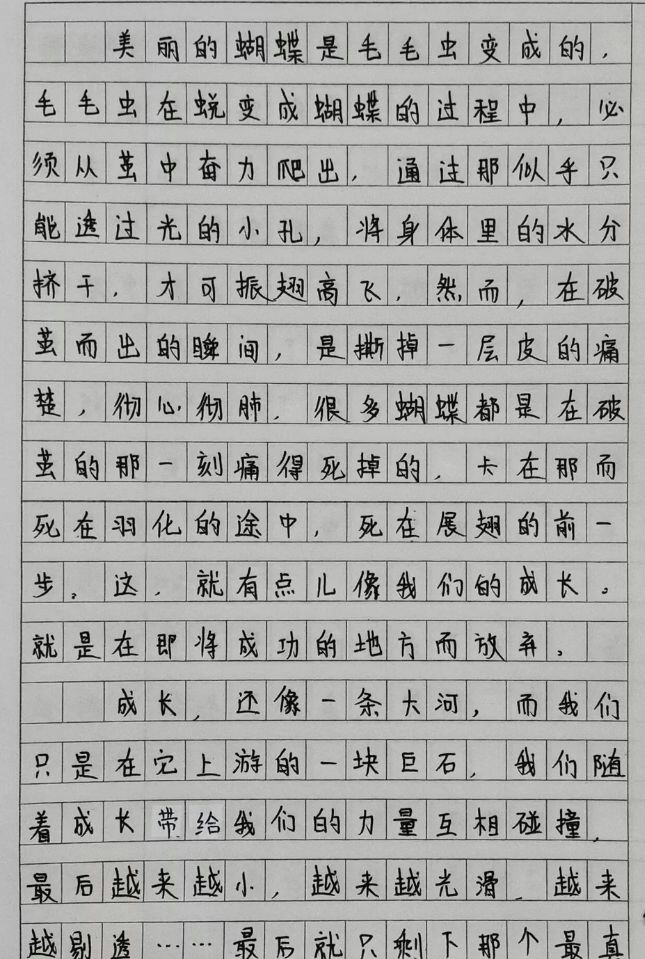 美丽的蝴蝶是毛毛虫变成的，
毛毛虫在蜕变成蝴蝶的过程中，必
须从茧中奋力爬出，通过那似乎只
能透过光的小孔，将身体里的水分
挤干，才可振翅高飞，然而，在破
茧而出的瞬间，是撕掉一层皮的痛
楚，彻心彻肺，很多蝴蝶都是在破
茧的那一刻痛得死掉的，卡在那而
死在羽化的途中，死在展翅的前一
步。这，就有点儿像我们的成长。
就是在即将成功的地方而放弃。
成长，还像一条大河，而我们
只是在它上游的一块巨石，我们随
着成长带给我们的力量互相碰撞，
最后越来越小，越来越光滑，越来
越剔透……最后就只剩下那个最真